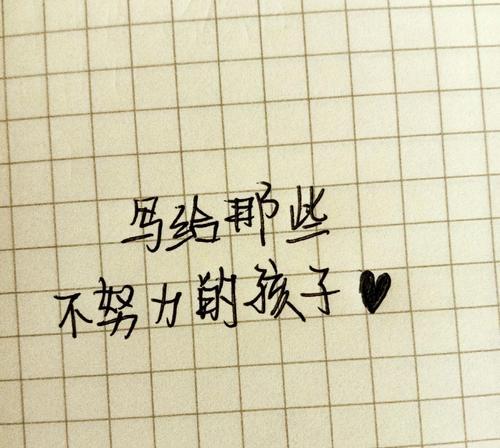 写给那些
不努力的孩子♥